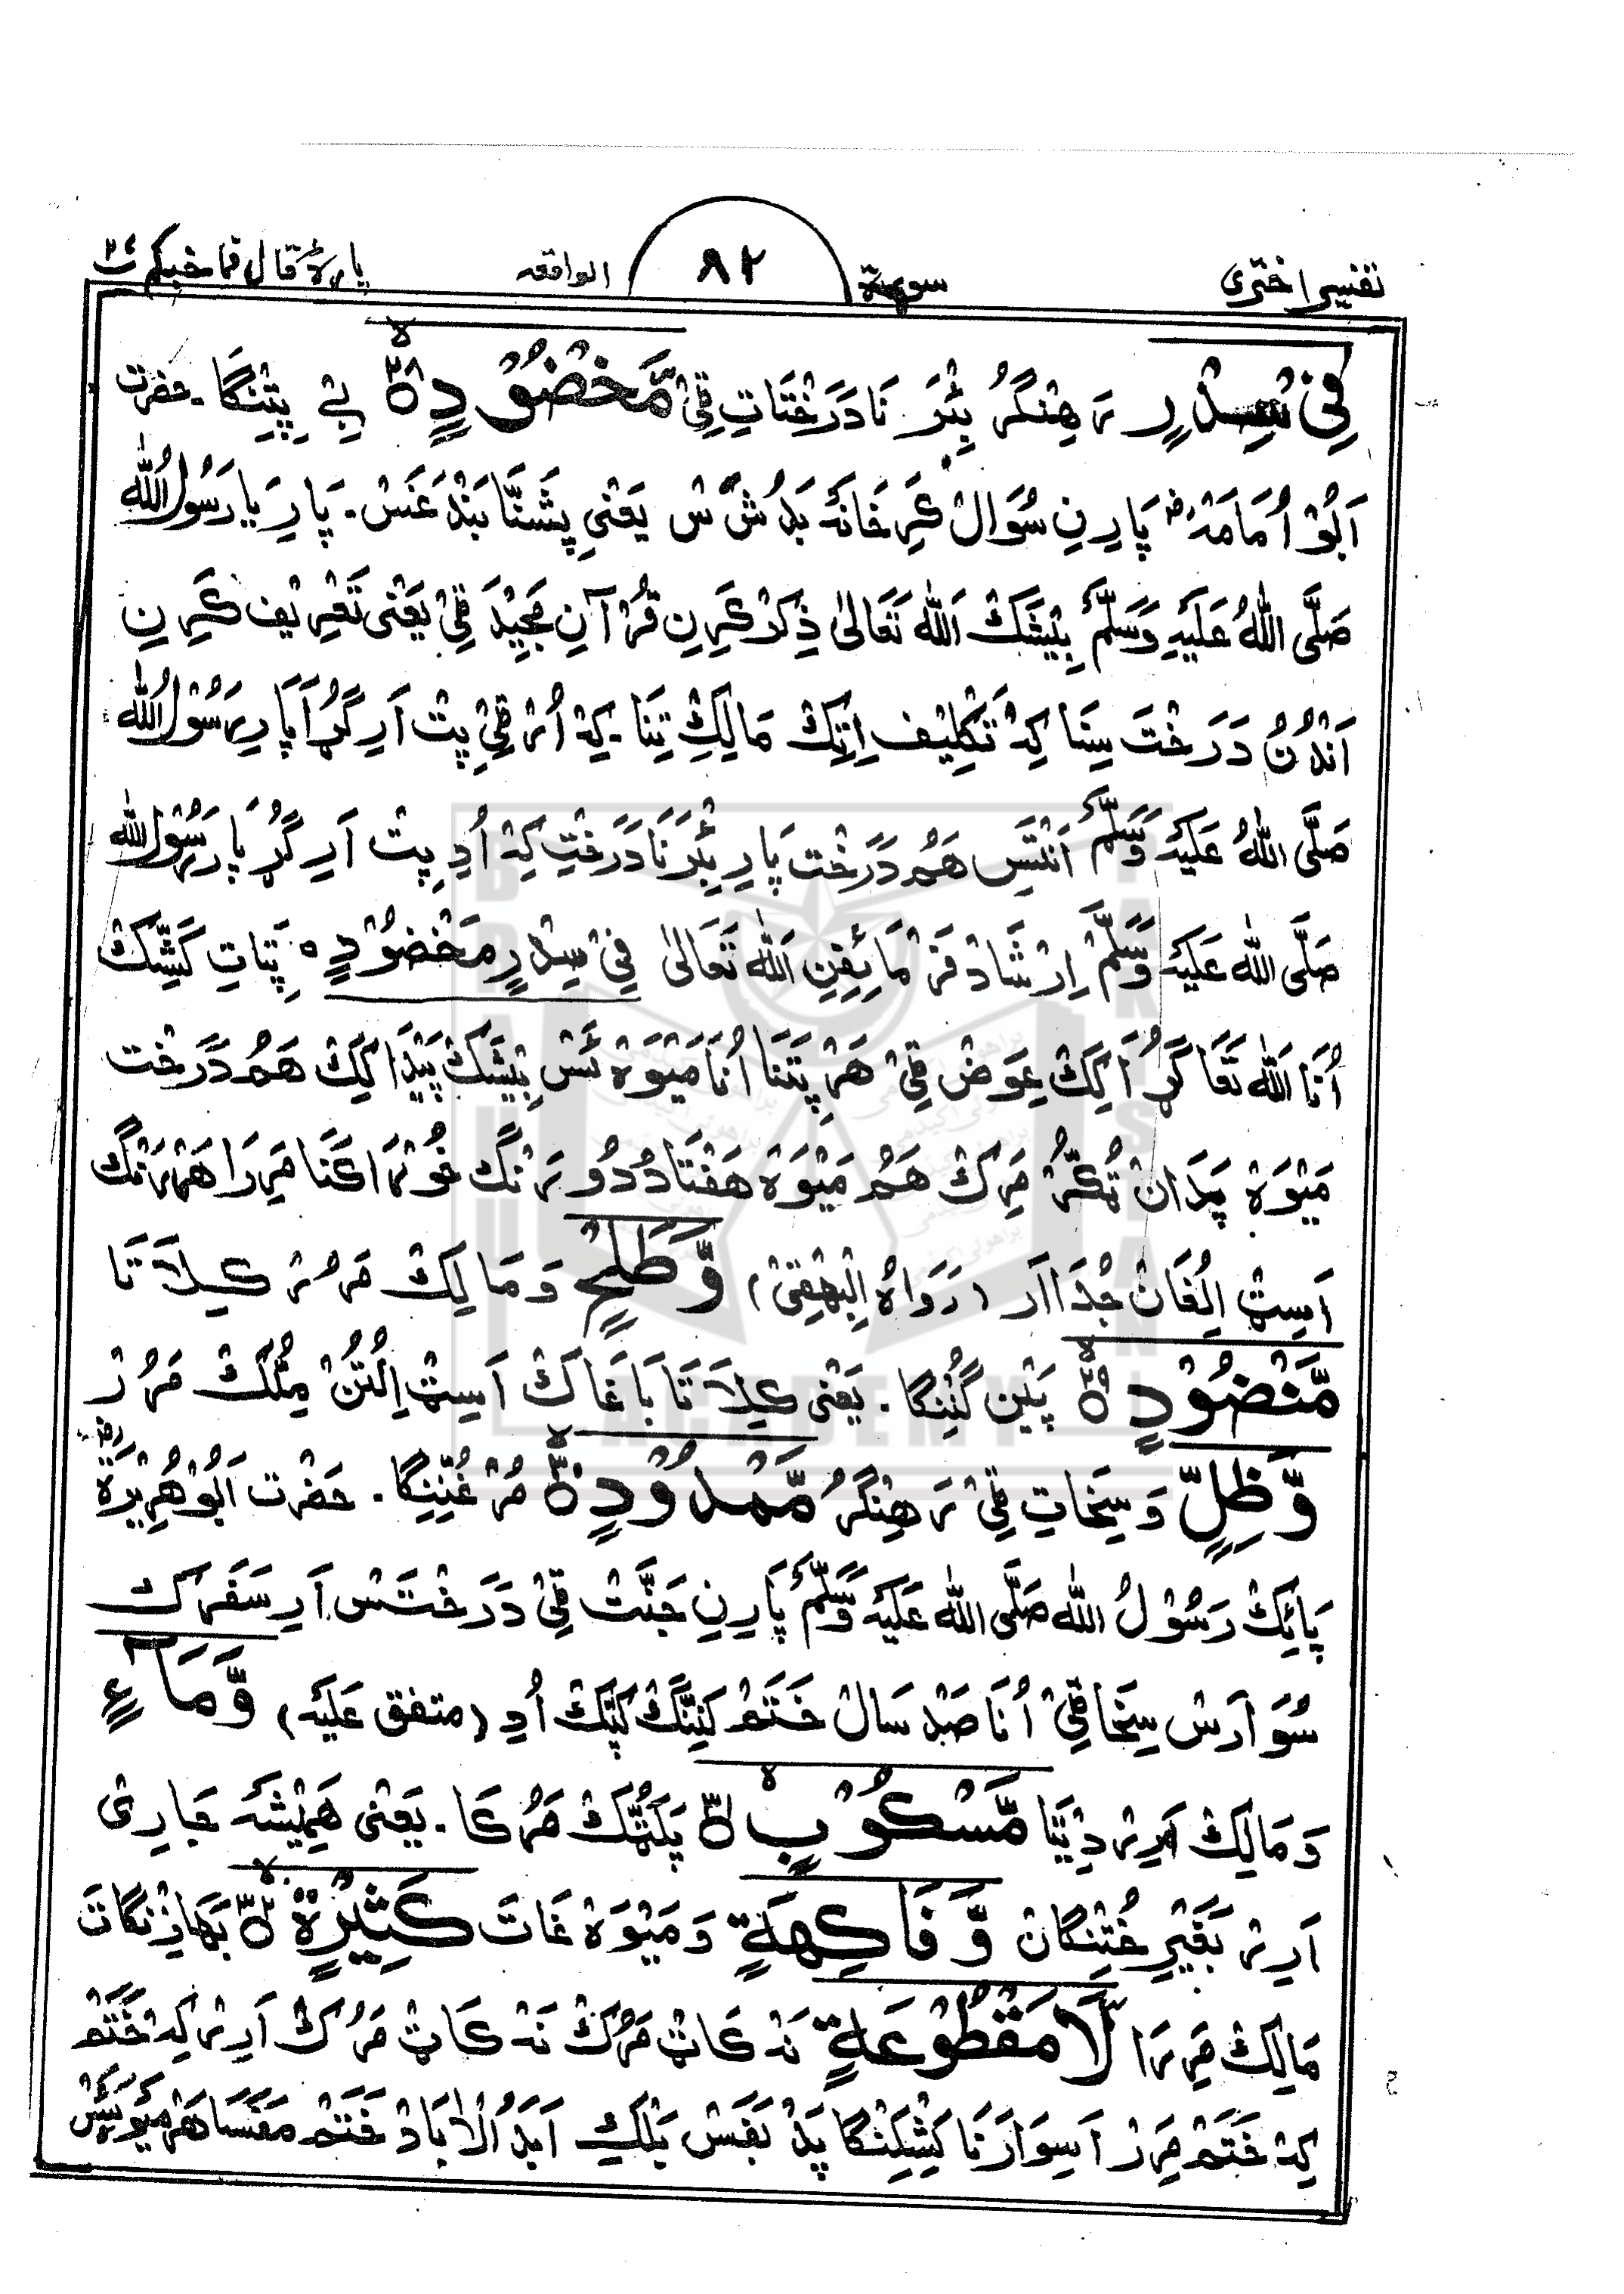 تفسیر اختری سورۃ ۸۲ الواقعه پارہ قال فما خطبکم ۲۷
فِیْ سِدْرٍ رَهِنْگُرُ بِئَرَ نَا دَرَخْتَاتِ قِیْ مَّخْضُوْدٍ ۲۸ بے پِتِنگَا۔ حضرت
اَبُوْ اُمَامَهْ پَارِنِ سُوَالْ کَرِ خَانَهْ بَدُشَّسْ یَعْنِی پِشَنَّا بَنْدَغَسْ۔ پَارِ یَا رَسُولُ اللّٰه
صَلَّی اللّٰهُ عَلَیهِ وَسَلَّمْ بِیْشَکْ اَللّٰه تَعَالٰی ذِکْرْ کَرِنِ قُرْآنِ مَجِیْدَ قِیْ یَعْنِی تَعْرِیْف کَرِنِ
اَنْدُنُ دَرَخْتَ سِنَا کِهْ تَکْلِیْف اِتِکْ مَالِکِ تِنَا۔ کِهْ اُرْ قِیْ پِتْ اَرِ گُڑَا پَارِ رَسُوْلُ اللّٰه
صَلَّی اللّٰهُ عَلَیْهِ وَسَلَّمْ اَنْتَسِ هَمُ دَرَخْت پَارِ بِئَرَ نَا دَرَخْتِ کِهْ اُدِ پِتْ اَرِ گُڑَ پَارِ رَسُوْلُ اللّٰه
صَلَّی اللّٰه عَلَیْهِ وَسَلَّمْ اِرْشَاد فَرْمَائِفِنِ اَللّٰه تَعَالٰی فِیْ سِدْرٍ مَخْضُوْدٍ ۰ پِتَاتِ کَشِّکْ
اُنَا اَللّٰه تَعَا گُڑَا کِکْ عِوَضْ قِیْ هَرْ پِتَنَا اُنَا مَیْوَهْ ئَسْ بِیْشَکْ پَیْدَا کِکْ هَمُ دَرَخْت
مَیْوَهْ پَدَانْ تُکُرُّ مَرِکْ هَمُ مَیْوَهْ هَفْتَادُ دُو رَنْگ خُوْرَاکَنَا مَرِرَا هَرْ رَنْگ
اَسِٹ اِلُغَانْ جُدَا اَر (رَوَاهُ الْبَیْهَقِیْ) وَّطَلْحٍ وَمَالِکْ مَرُرْ کِیلَا تَا
مَّنْضُوْدٍ ۲۹ پَلْین کُنِنگا۔ یَعْنِی کِیلَا تَا بَاغَاکْ اَسِٹ اِلُتُنْ مِلُّکْ مَرُرْ
وَّظِلٍّ وَسِخَاتِ قِیْ رَهِنْگُرُ مَّمْدُوْدٍ ۳۰ مُرْغُنِنگَا۔ حَضْرَت اَبُوْ هُرَیْرَةْ
پَائِکْ رَسُوْلُ اللّٰه صَلَّی اللّٰه عَلَیْهِ وَسَلَّمْ پَارِنِ جَنَّتْ قِیْ دَرَخْتَسْ اَرِ سَفَرَک
سُوَارَسْ سِخَا قِیْ اُنَا صَدْ سَالْ خَتَمْ کَنِنَّگْ کَپَّکْ اُدِ (متفق عَلَیْه) وَّمَآءٍ
وَمَالِکْ اَرِرْ دِیْتَا مَّسْکُوْبٍ ۳۱ پَلَٹُّکْ مَرُکَا۔ یَعْنِی هَمِیْشَهْ جَارِی
اَرِرْ بَغَیْرِ خُتِنگَانْ وَّفَاکِهَةٍ وَمَیْوَهْ غَاتَ کَثِیْرَةٍ ۳۲ بَهَازِنگَاتَ
مَالِکْ مَرِرَا لَّا مَقْطُوْعَةٍ نَهْ کَاٹ مَرُکْ نَهْ کَاٹ مَرُکْ اَرِرْ کِهْ خَتَمْ
کِهْ خَتَمْ مَرِرْ اَسِوَارْنَا کَشِنِگَا پَدْ بَفَسْ بَلْکِ اَبَدُ الْاٰبَادْ خَتَمْ مَفَسَا هَرْ مَیْوَئَسْ